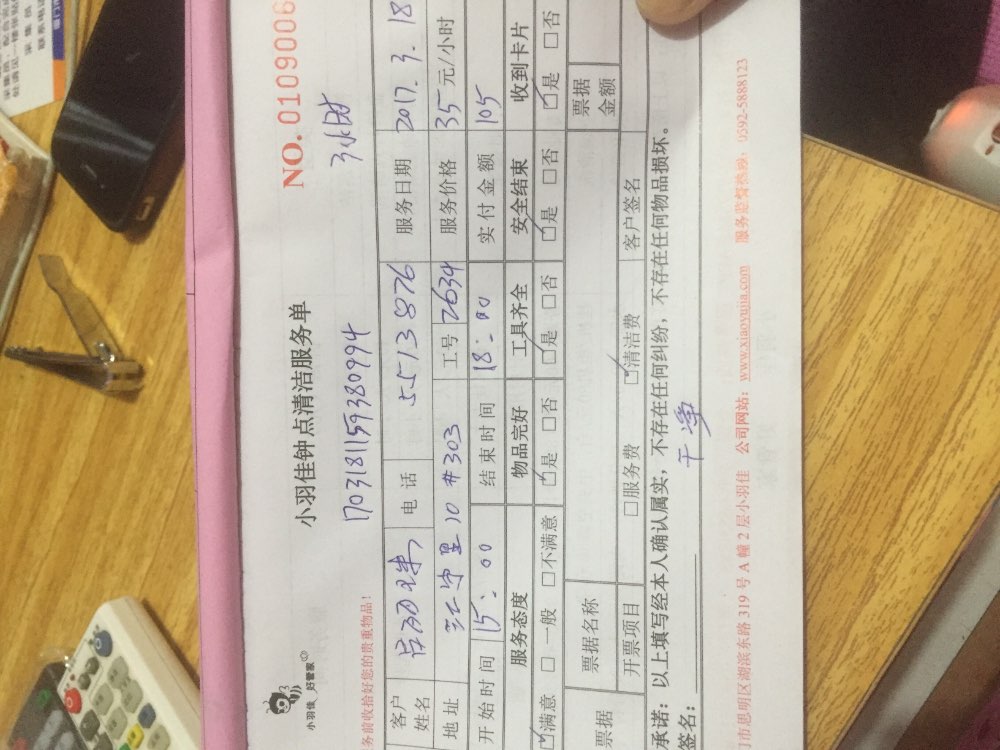 小羽佳 好管家
小羽佳钟点清洁服务单
NO. 0109006
1703181159380994
3小时
务前收拾好您的贵重物品!
客户姓名 电话 5513876 服务日期 2017.3.18
地址 10#303 工号 2634 服务价格 35元/小时
开始时间 15:00 结束时间 18:00 实付金额 105
服务态度 物品完好 工具齐全 安全结束 收到卡片
☑满意 □一般 □不满意 ☑是 □否 ☑是 □否 ☑是 □否 ☑是 □否
票据 票据名称 票据金额
开票项目 □服务费 ☑清洁费 客户签名
承诺:以上填写经本人确认属实,不存在任何纠纷,不存在任何物品损坏。
签名: 干净
门市思明区湖滨东路 319 号 A 幢 2 层小羽佳 公司网站:www.xiaoyujia.com 服务监督热线:0592-5888123